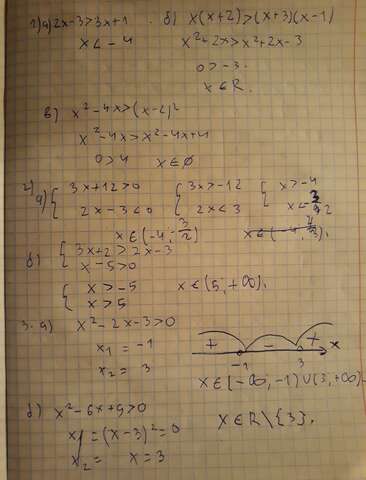 1) а) 2x-3>3x+1    б) x(x+2)>(x+3)(x-1)
x<-4    x²+2x>x²+2x-3
0>-3.
x∈R.
в) x²-4x>(x-2)²
x²-4x>x²-4x+4
0>4    x∈∅
2)
а) { 3x+12>0    { 3x>-12    { x>-4
2x-3≤0    2x≤3    x≤ 3/2
x∈(-4; 3/2)
б) { 3x+2>2x-3
x-5>0
{ x>-5    x∈(5;+∞).
x>5
3. а) x²-2x-3>0
x₁=-1    + - + x
x₂=3    -1 3
x∈(-∞,-1)∪(3;+∞)
б) x²-6x+9>0    x∈R\{3}.
x₁=(x-3)²=0
x₂= x=3